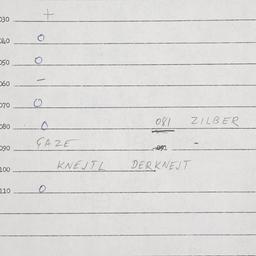 030 +
040 0
050 0
060 -
070 0
080 0 081 ZILBER
090 GAZE -
100 KNEJTL DERKNEJT
110 0